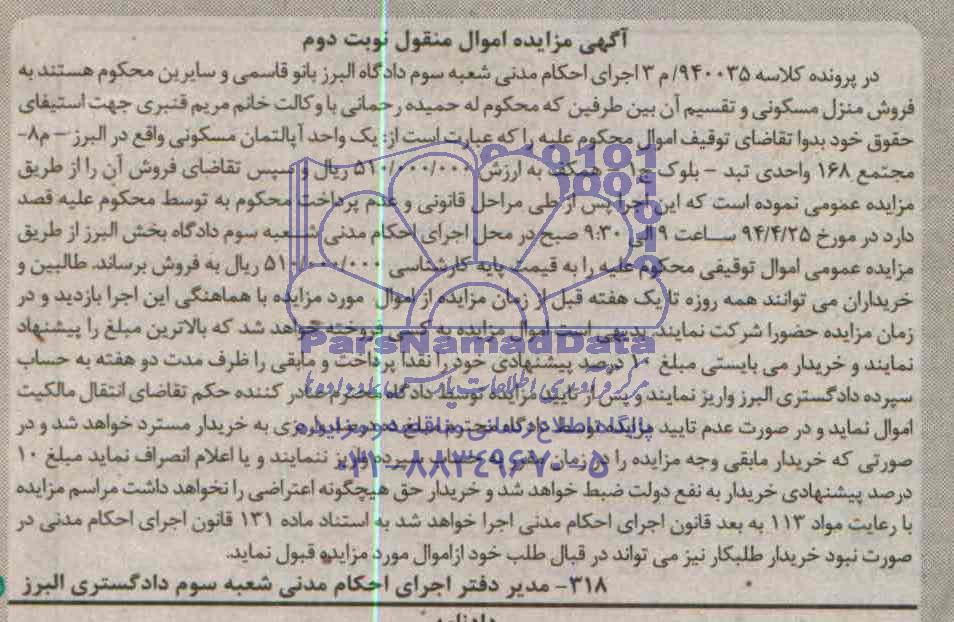 آگهی مزایده اموال منقول نوبت دوم
در پرونده کلاسه ۹۴۰۰۳۵/م ۳ اجرای احکام مدنی شعبه سوم دادگاه البرز بانو قاسمی و سایرین محکوم هستند به
فروش منزل مسکونی و تقسیم آن بین طرفین که محکوم له حمیده رحمانی با وکالت خانم مریم قنبری جهت استیفای
حقوق خود بدوا تقاضای توقیف اموال محکوم علیه را که عبارت است از: یک واحد آپالتمان مسکونی واقع در البرز – م۸-
مجتمع ۱۶۸ واحدی تبد – بلوک ج۱ – همکف به ارزش ۵۱۰/۰۰۰/۰۰۰ ریال و سپس تقاضای فروش آن را از طریق
مزایده عمومی نموده است که این اجرا پس از طی مراحل قانونی و عدم پرداخت محکوم به توسط محکوم علیه قصد
دارد در مورخ ۹۴/۴/۲۵ ساعت ۹ الی ۹:۳۰ صبح در محل اجرای احکام مدنی شعبه سوم دادگاه بخش البرز از طریق
مزایده عمومی اموال توقیفی محکوم علیه را به قیمت پایه کارشناسی ۵۱۰/۰۰۰/۰۰۰ ریال به فروش برساند. طالبین و
خریداران می توانند همه روزه تا یک هفته قبل از زمان مزایده از اموال مورد مزایده با هماهنگی این اجرا بازدید و در
زمان مزایده حضورا شرکت نمایند. بدیهی است اموال مزایده به کسی فروخته خواهد شد که بالاترین مبلغ را پیشنهاد
نمایند و خریدار می بایستی مبلغ ۱۰ درصد پیشنهادی خود را نقدا پرداخت و مابقی را ظرف مدت دو هفته به حساب
سپرده دادگستری البرز واریز نمایند و پس از تایید مزایده توسط دادگاه محترم صادر کننده حکم تقاضای انتقال مالکیت
اموال نماید و در صورت عدم تایید مزایده توسط دادگاه محترم مبلغ ده درصد واریزی به خریدار مسترد خواهد شد و در
صورتی که خریدار مابقی وجه مزایده را در زمان مقرر به حساب سپرده واریز ننمایند و یا اعلام انصراف نماید مبلغ ۱۰
درصد پیشنهادی خریدار به نفع دولت ضبط خواهد شد و خریدار حق هیچگونه اعتراضی را نخواهد داشت مراسم مزایده
با رعایت مواد ۱۱۳ به بعد قانون اجرای احکام مدنی اجرا خواهد شد به استناد ماده ۱۳۱ قانون اجرای احکام مدنی در
صورت نبود خریدار طلبکار نیز می تواند در قبال طلب خود ازاموال مورد مزایده قبول نماید.
۳۱۸- مدیر دفتر اجرای احکام مدنی شعبه سوم دادگستری البرز
ParsNamadData
پایگاه اطلاع رسانی مناقصه و مزایده
۰۲۱-۸۸۳۴۹۶۷۰-۵